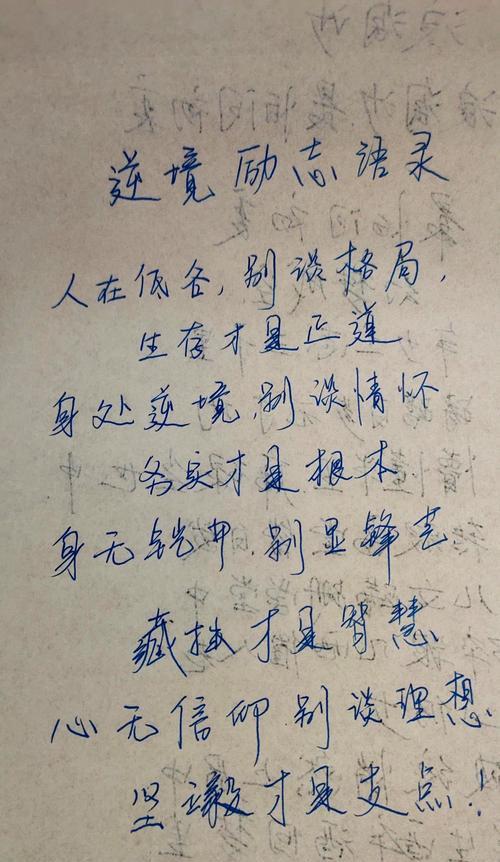 逆境励志语录
人在低各,别谈格局,
生存才是正道
身处逆境,别谈情怀
务实才是根本
身无铠甲,别显锋芒
藏拙才是智慧
心无信仰,别谈理想
坚毅才是支点!